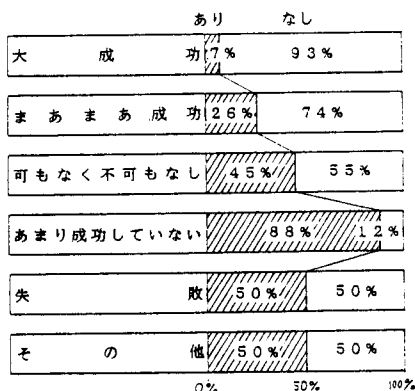 あり なし
大成功 7% 93%
まあまあ成功 26% 74%
可もなく不可もなし 45% 55%
あまり成功していない 88% 12%
失敗 50% 50%
その他 50% 50%
0% 50% 100%